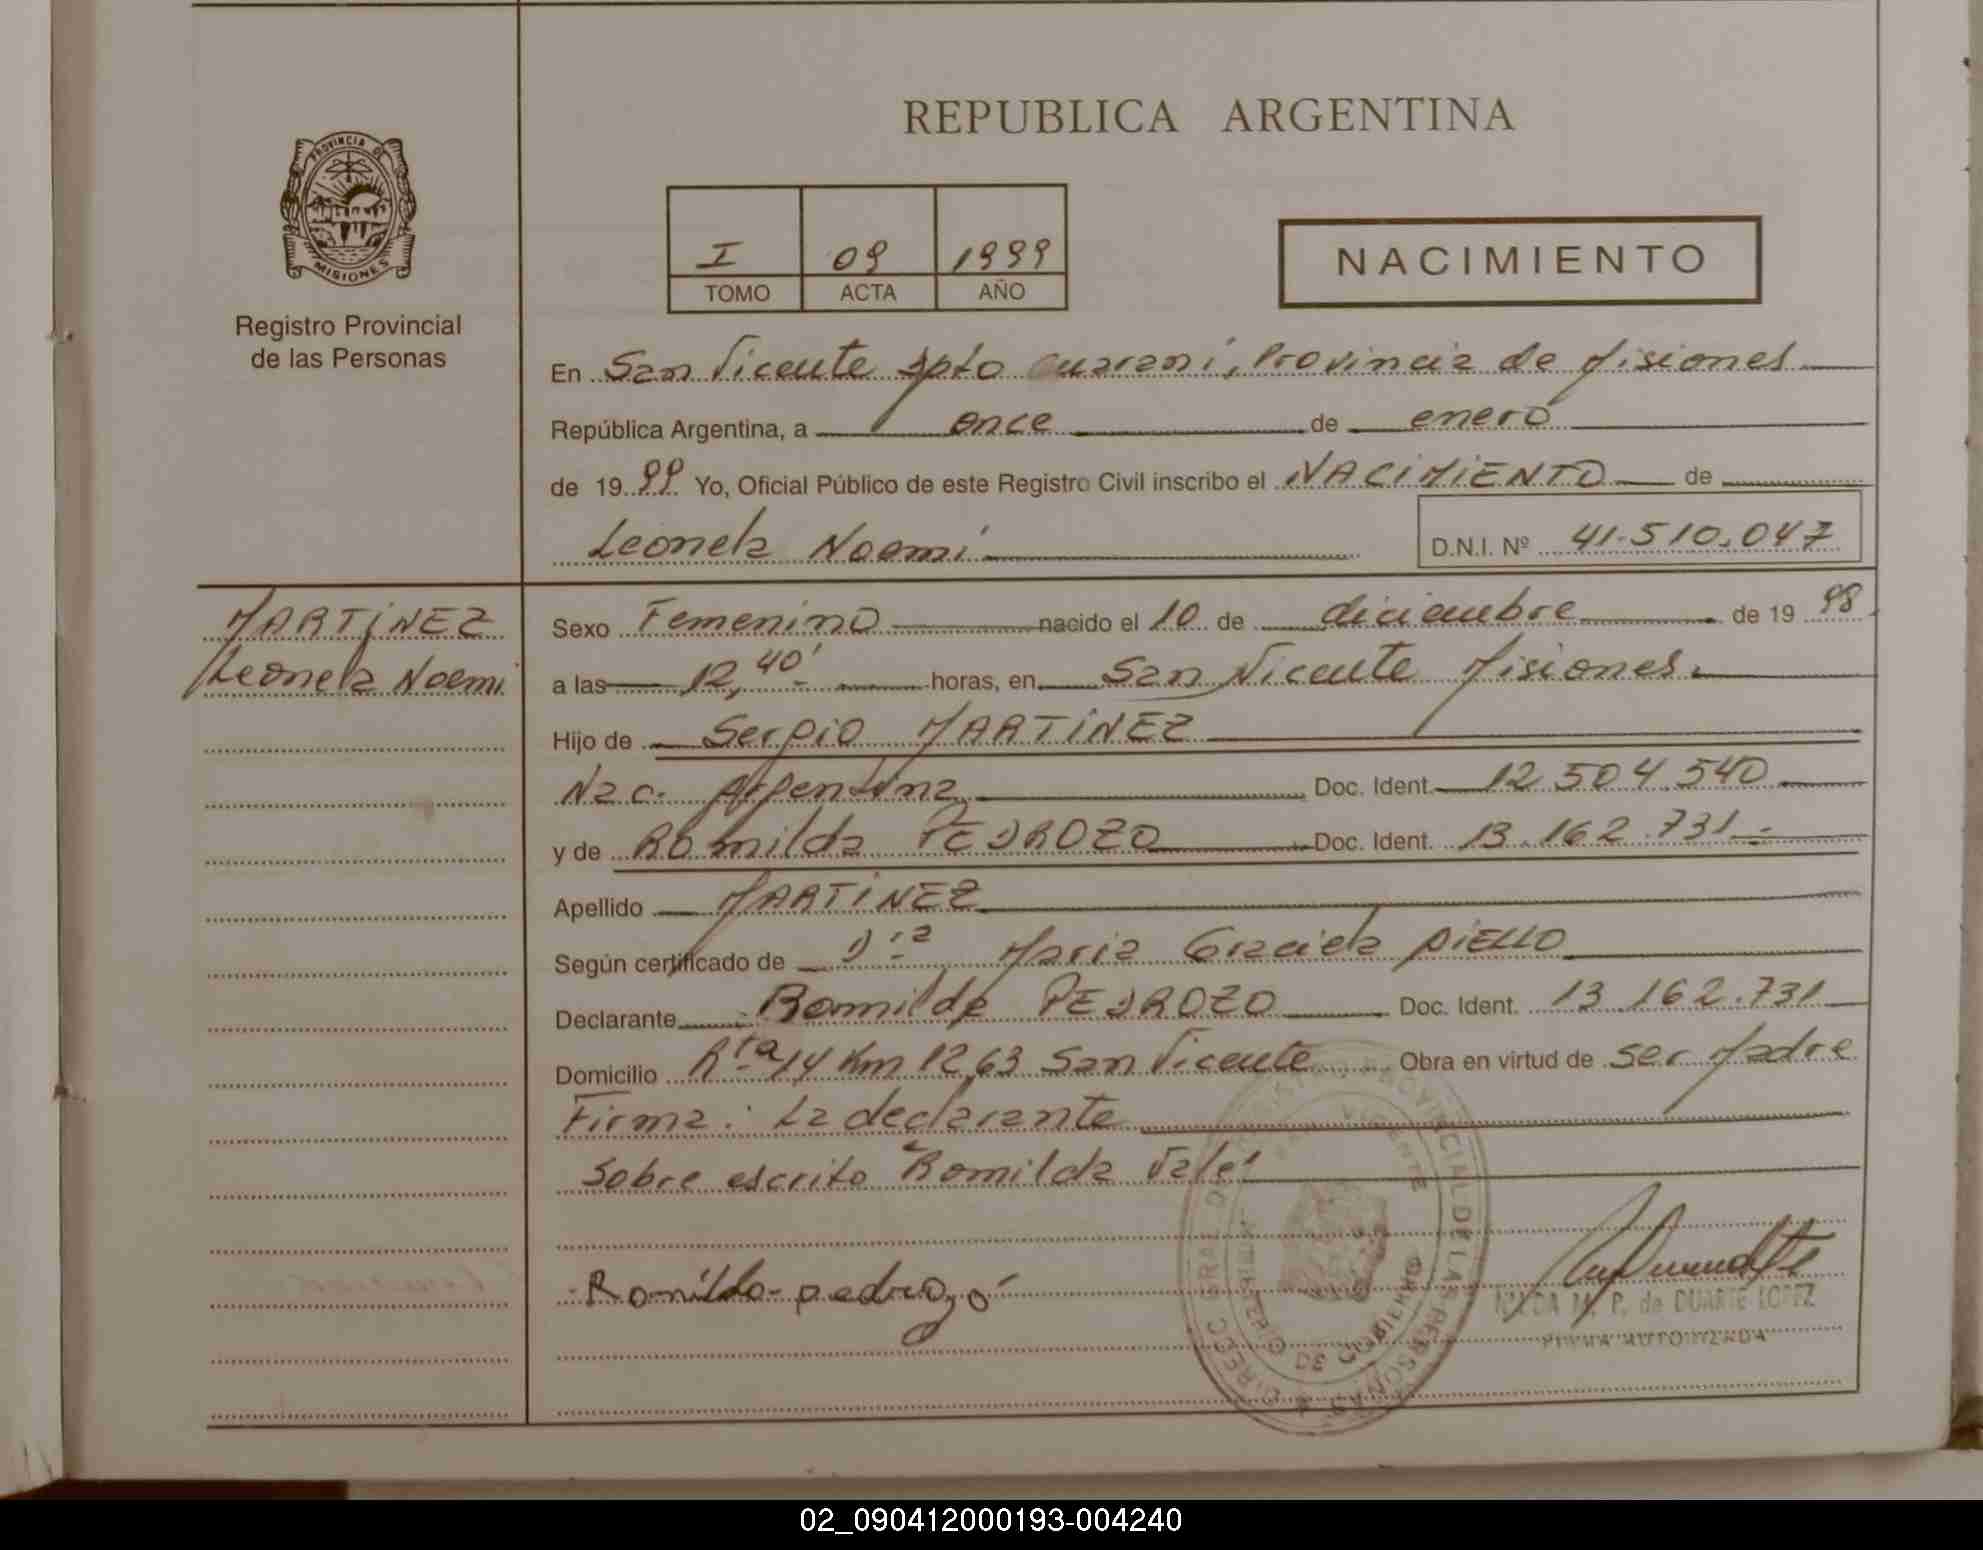 REPUBLICA ARGENTINA
PROVINCIA DE
MISIONES
Registro Provincial
de las Personas
I 09 1999
TOMO ACTA AÑO
NACIMIENTO
En San Vicente Dpto Guaraní, Provincia de Misiones
República Argentina, a once de enero
de 1999 Yo, Oficial Público de este Registro Civil inscribo el NACIMIENTO de
Leonela Noemí D.N.I. Nº 41.510.047
MARTINEZ
Leonela Noemi
Sexo Femenino nacido el 10 de diciembre de 1998
a las 12,40' horas, en San Vicente Misiones
Hijo de Sergio MARTINEZ
Nac. Argentina Doc. Ident. 12.504.540
y de Romilda PEDROZO Doc. Ident. 13.162.731
Apellido MARTINEZ
Según certificado de Dra Maria Graciela DIELLO
Declarante Romilda PEDROZO Doc. Ident. 13.162.731
Domicilio Rta 14 Km 1263 San Vicente Obra en virtud de ser Madre
Firma: La declarante
Sobre escrito "Romilda Vale"
Romilda pedrozo
M. P. de DUARTE LOPEZ
FIRMA AUTORIZADA
02_090412000193-004240